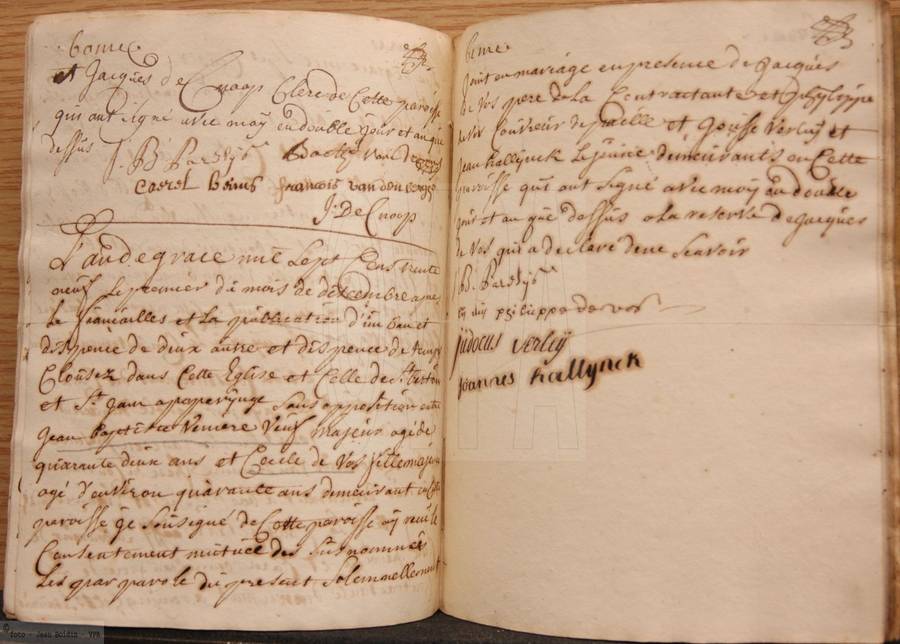 6ome
et Jacques de Cnoop Clerc de Cette paroisse
qui ont signé avec moy en double jour et an que
dessus
caerel Beius francois van den
J: De Cnoop
L'an de grace mil sept Cens trente
neuf le premier du mois de decembre apres
les fiancailles et la publication d'un ban et
dispence de deux autre et dispence de temps
Clousez dans Cette Eglise et Celle de St
et St Jean a poperynge sans opposition entre
Jean Baptiste veuf majeur agé de
quarante deux ans et Cecile de Vos fille majeure
agé d'environ quarante ans demeurant en Cette
paroisse je sousigné de Cette paroisse ay receu le
Consentement mutuel des surnommés
les par parole du present solemnellement
6eme
joint en mariage en presence de Jacques
de Vos pere de la Contractante et
et Josse Verleij et
Jean Kallynck le jeune demeurants en Cette
paroisse qui ont signé avec moy en double
jour et an que dessus a la reserve de Jacques
de Vos qui a declare de ne scavoir
philippe de vos
judocus verleij
joannes kallynck
© foto - Jean Boidin - VPR